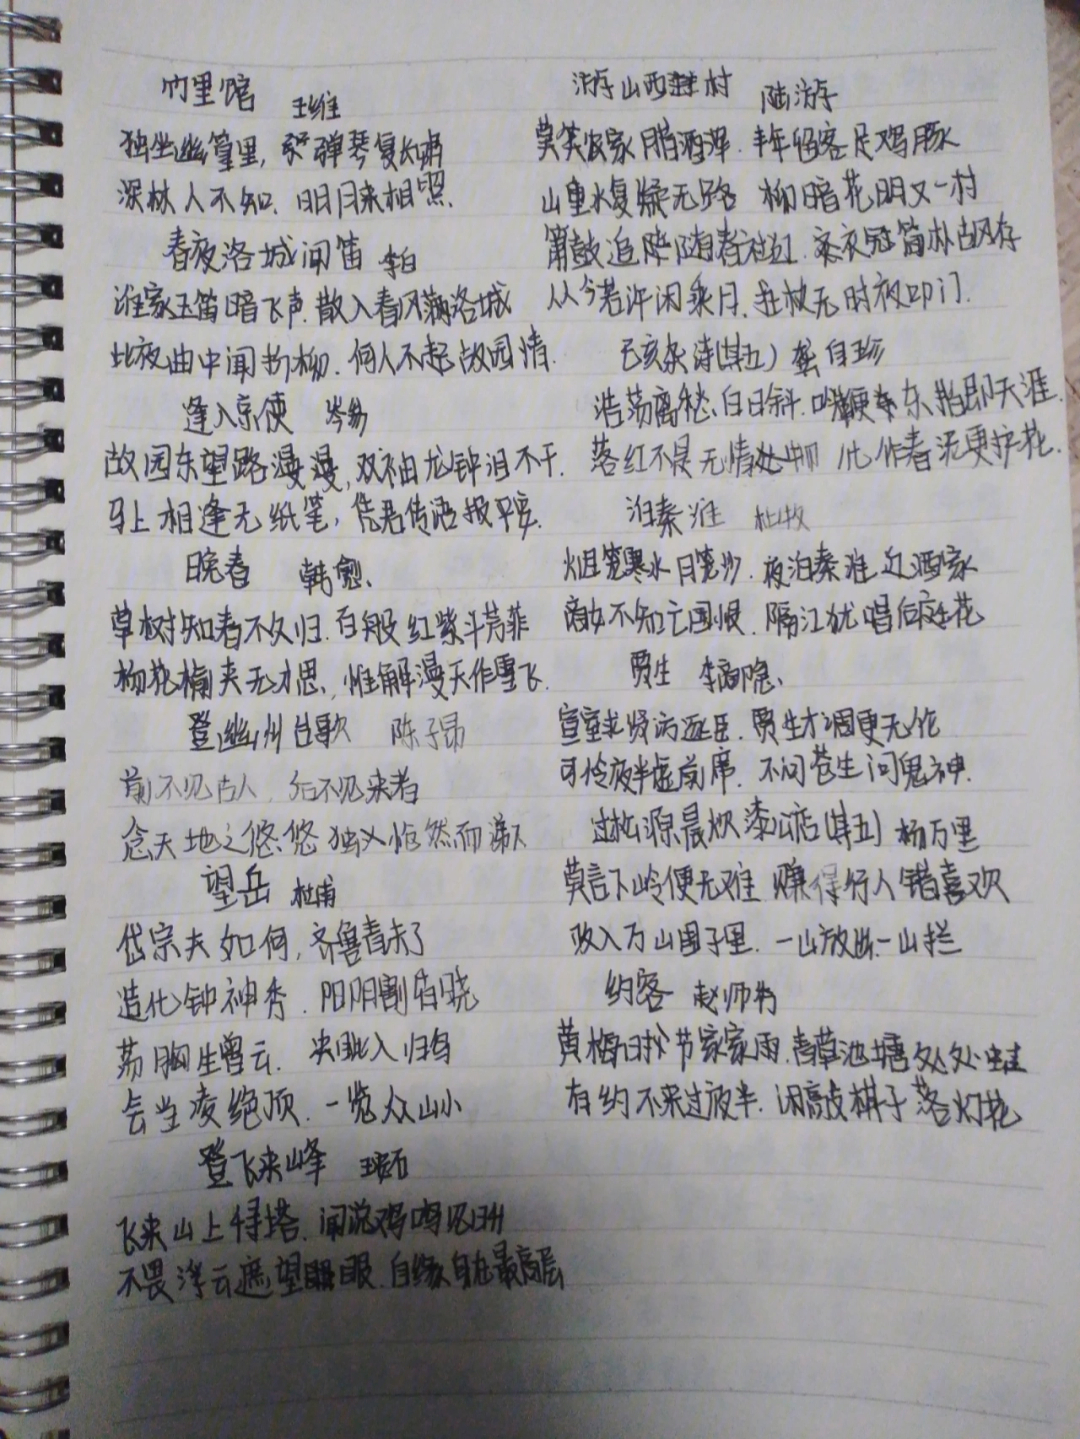 竹里馆 王维
独坐幽篁里,弹琴复长啸
深林人不知、明月来相照.
春夜洛城闻笛 李白
谁家玉笛暗飞声.散入春风满洛城
此夜曲中闻折柳.何人不起故园情.
逢入京使 岑参
故园东望路漫漫,双袖龙钟泪不干.
马上相逢无纸笔,凭君传语报平安.
晚春 韩愈、
草树知春不久归.百般红紫斗芳菲
杨花榆荚无才思、惟解漫天作雪飞.
登幽州台歌 陈子昂
前不见古人,后不见来者
念天地之悠悠 独 怆然而涕下
望岳 杜甫
岱宗夫如何,齐鲁青未了
造化钟神秀.阴阳割昏晓
荡胸生曾云.决眦入归鸟
会当凌绝顶.一览众山小
登飞来峰 王安石
飞来山上千寻塔.闻说鸡鸣见日升
不畏浮云遮望眼.自缘身在最高层
游山西村 陆游
莫笑农家腊酒浑.丰年留客足鸡豚
山重水复疑无路 柳暗花明又一村
箫鼓追随春社近.衣冠简朴古风存
从今若许闲乘月.拄杖无时夜叩门.
己亥杂诗(其五) 龚自珍
浩荡离愁白日斜.吟鞭东指即天涯.
落红不是无情物 化作春泥更护花.
泊秦淮 杜牧
烟笼寒水月笼沙.夜泊秦淮近酒家
商女不知亡国恨.隔江犹唱后庭花
贾生 李商隐、
宣室求贤访逐臣.贾生才调更无伦
可怜夜半虚前席.不问苍生问鬼神.
过松源晨炊漆公店(其五) 杨万里
莫言下岭便无难.赚得行人错喜欢
政入万山围子里.一山放出一山拦
约客 赵师秀
黄梅时节家家雨.青草池塘处处蛙
有约不来过夜半.闲敲棋子落灯花